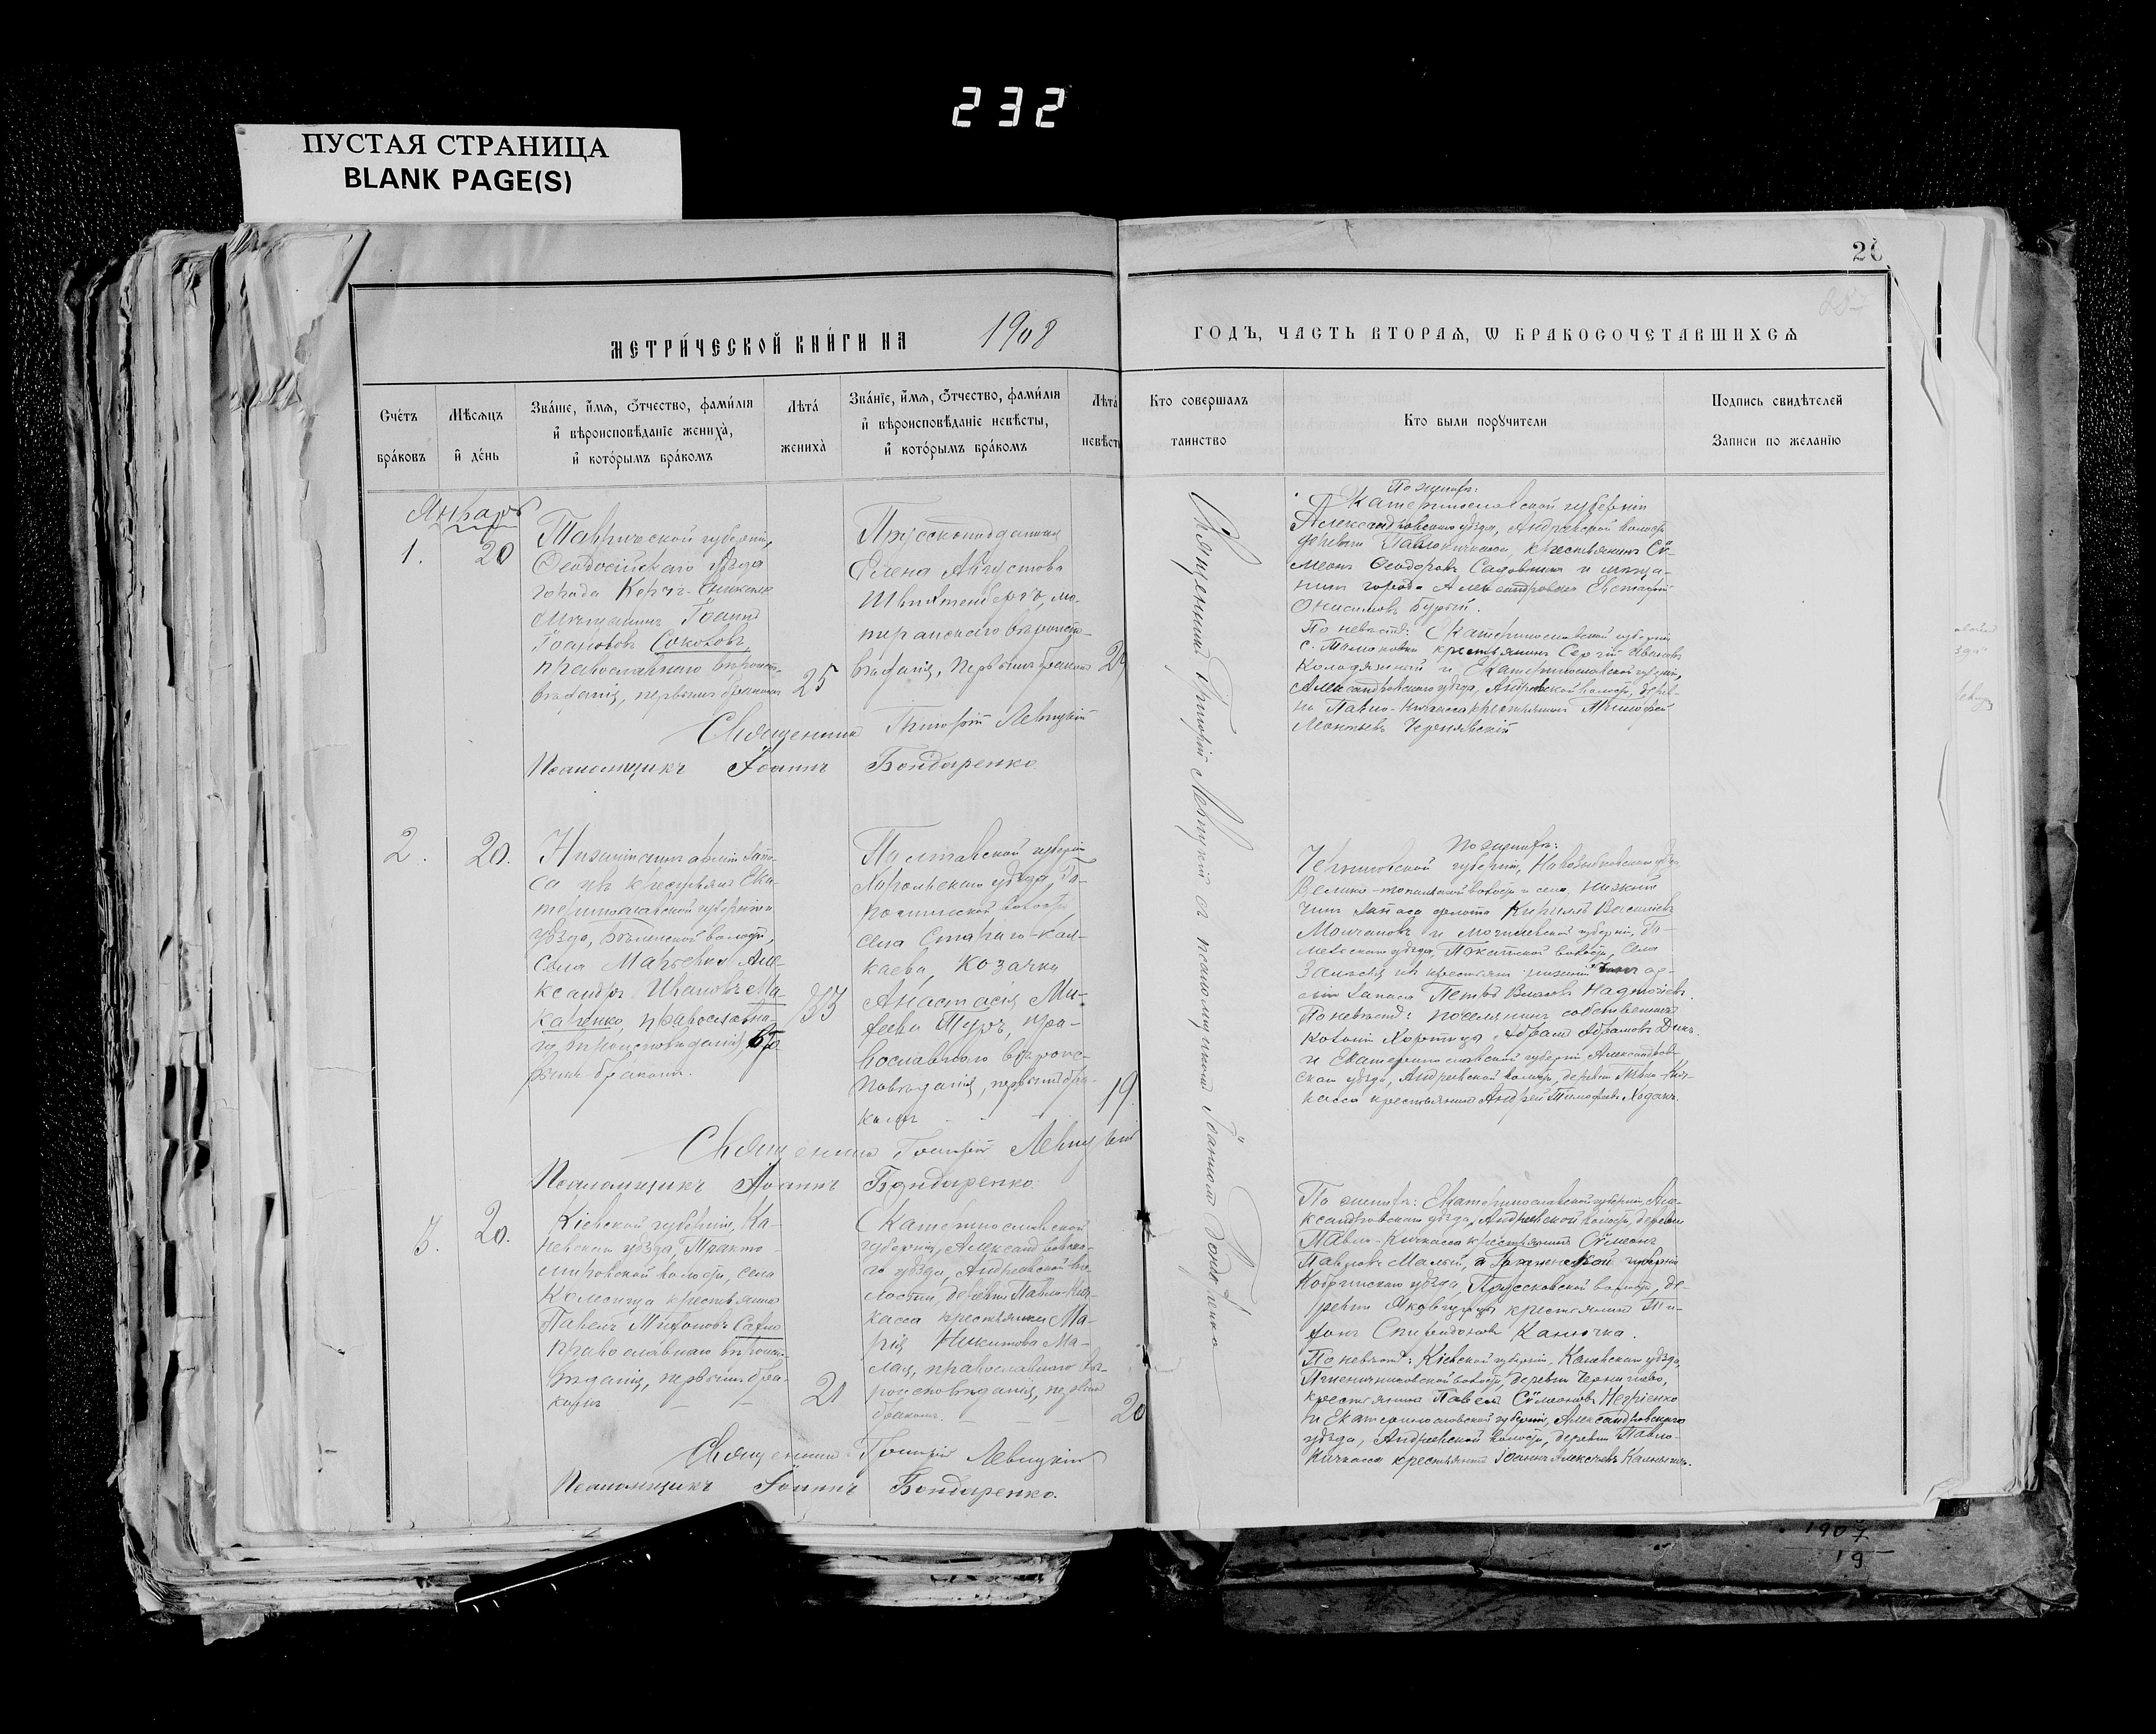 232
ПУСТАЯ СТРАНИЦА
BLANK PAGE(S)
26
МЕТРИ́ЧЕСКОЙ КНИ́ГИ НА 1908
ГОДЪ, ЧАСТЬ ВТОРАѦ, Ѡ БРАКОСОЧЕТАВШИХСѦ
Счéтъ
брáковъ
Мѣсѧцъ
и҆ дéнь
Звáнїе, и҆́мѧ, ѻ҆́тчество, фами́лїѧ
и҆ вѣроисповѣ́данїе женихà,
и҆ кото́рымъ брáкомъ
Лѣтá
женихà
Звáнїе, и҆́мѧ, ѻ҆́тчество, фами́лїѧ
и҆ вѣроисповѣ́данїе невѣ́сты,
и҆ кото́рымъ брáкомъ
Лѣтá
невѣст
Кто совершалъ
таинство
Кто были порꙋчители
Подпись свидѣтелей
Записи по желанїю
Январь
1.
20
Таврической губерніи,
Ѳеодосійскаго уѣзда
города Керчь-Еникале
мѣщанинъ Іоаннъ
Іоанновъ Соколовъ,
православнаго вѣроиспо-
вѣданія, первымъ бракомъ
25
Прусскоподданная
Елена Августова
лютеранскаго вѣроиспо-
вѣданія, первымъ бракомъ
Священникъ Григорій Левицкій
Псаломщикъ Іоаннъ Бондаренко
Священникъ Григорій Левицкій съ псаломщикомъ Іоанномъ Бондаренко
По женихѣ:
Екатеринославской губерніи
Александровскаго уѣзда, Андреевской волости,
деревни Павлокичкаса, крестьянинъ Сѵ-
меонъ Ѳеодоровъ Садовник и мѣща-
нинъ города Александровска Евстафій
Онисимовъ Бурый.
По невѣстѣ: Екатеринославской губерніи
с. Томаковки крестьянинъ Сергій Ивановъ
Колодяжный и Екатеринославской губерніи,
Александровскаго уѣзда, Андреевской волости, дерев-
ни Павло-Кичкасса крестьянинъ Тимофей
Леонтьевъ Чернявскій
2.
20.
Нижній чинъ арміи запа-
са изъ крестьянъ Ека-
теринославской губерніи и
уѣзда, волости,
села Марьевки Але-
ксандръ Ивановъ Ма-
каренко, православна-
го вѣроисповѣданія, вто-
рымъ бракомъ.
33
Полтавской губерніи
Хорольскаго уѣзда,
волости,
села Стараго-Кал-
каева, козачка
Анастасія Ми-
Туръ, пра-
вославнаго вѣроис-
повѣданія, первымъ бра-
комъ
19
Священникъ Григорій Левицкій
Псаломщикъ Іоаннъ Бондаренко.
По женихѣ:
Черниговской губерніи, Новозыбковскаго уѣзда
Велико-топальской волости и села, нижній
чинъ запаса флота Кириллъ Василіевъ
Молчановъ и Могилевской губерніи, Го-
мельскаго уѣзда, волости, села
изъ крестьянъ нижній чинъ ар-
міи запаса Петръ Власовъ Надточіевъ.
По невѣстѣ: поселянинъ собственникъ
колоніи Хортица, Абрамъ Абрамовъ Дикъ
и Екатеринославской губерніи, Александров-
скаго уѣзда, Андреевской волости, деревни Павло-Кич-
касса крестьянинъ Андрей Тимофеевъ Ходакъ.
3.
20.
Кіевской губерніи, Ка-
невскаго уѣзда, Тракто-
мировской волости, села
крестьянинъ
Павелъ
православнаго вѣроиспо-
вѣданія, первымъ бра-
комъ
21
Екатеринославской
губерніи, Александровска-
го уѣзда, Андреевской во-
лости, деревни Павло-Кич-
касса крестьянка Ма-
рія Никитова Ма-
лая, православнаго вѣ-
роисповѣданія, первымъ
бракомъ.
20
Священникъ Григорій Левицкій
Псаломщикъ Іоаннъ Бондаренко.
По женихѣ: Екатеринославской губерніи, Але-
ксандровскаго уѣзда, Андреевской волости, деревни
Павло-Кичкасса крестьянинъ Сѵмеонъ
Павловъ Малый, а Гродненской губерніи
Кобринскаго уѣзда, волости, де-
ревни крестьянинъ Ти-
Спиридоновъ Канючка.
По невѣстѣ: Кіевской губерніи, Каневскаго уѣзда,
Пшеничниковской волости, деревни
крестьянинъ Павелъ Сѵмеоновъ
и Екатеринославской губерніи, Александровскаго
уѣзда, Андреевской волости, деревни Павло-
Кичкасса крестьянинъ Іоаннъ Алексѣевъ
1907
19